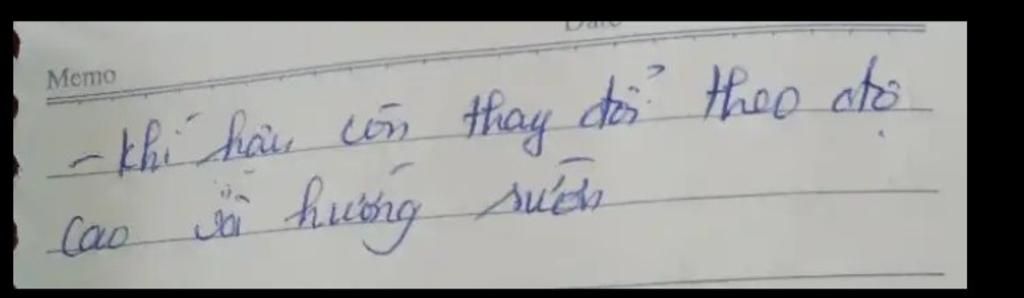 Date
Memo
- khí hậu còn thay đổi theo độ
cao và hướng sườn